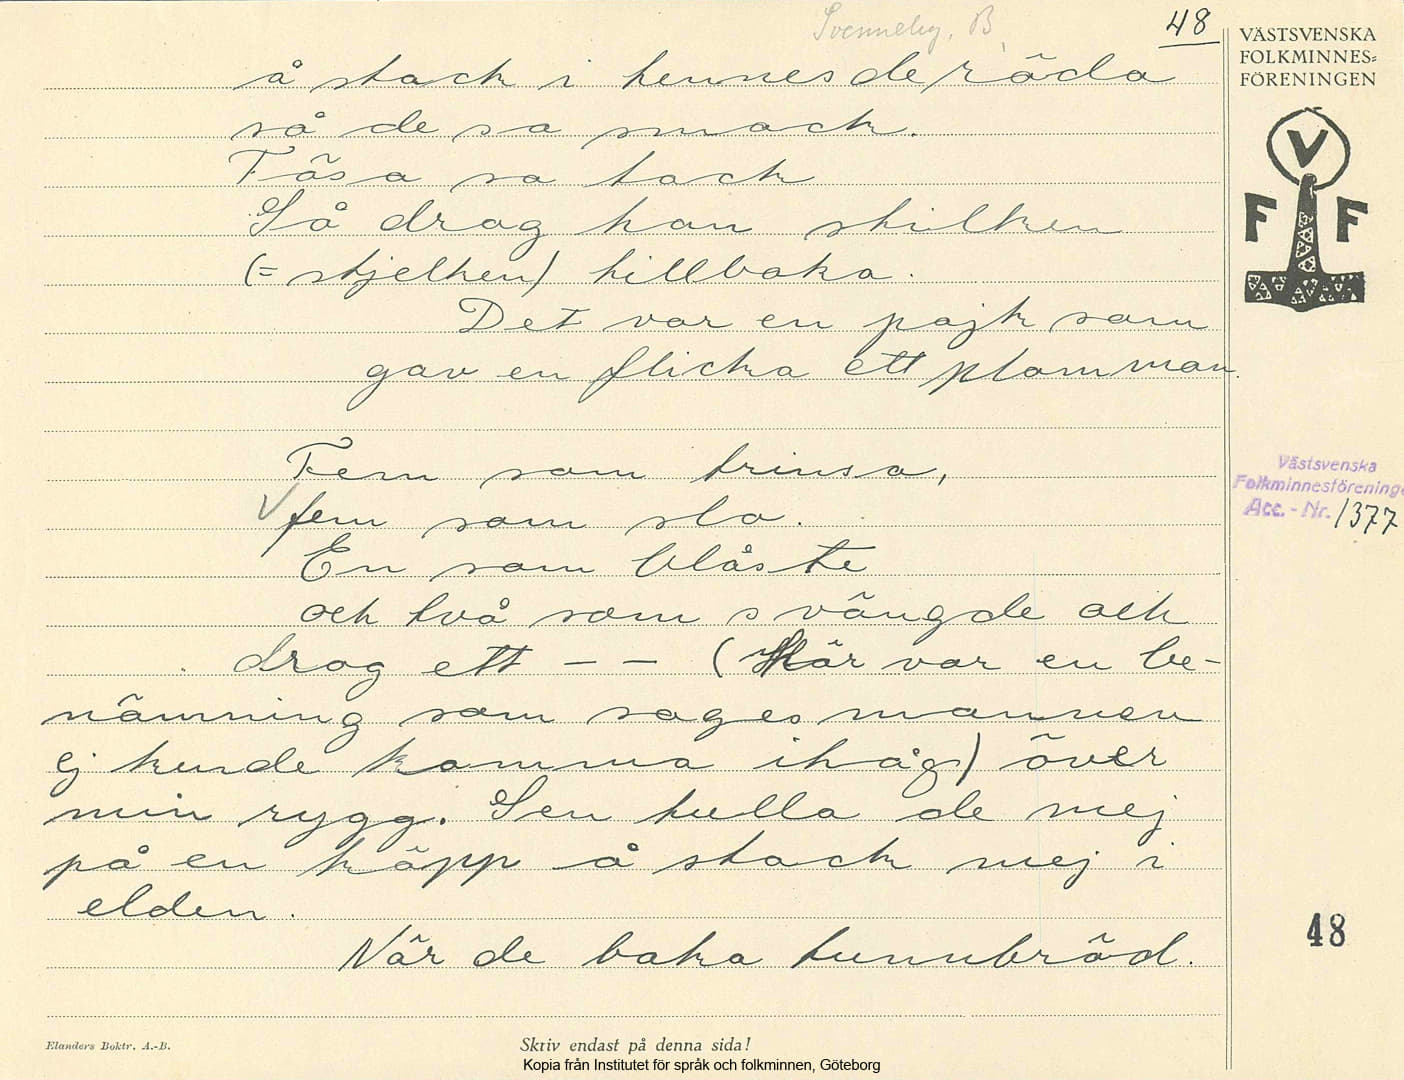 Svenneby, B
48
VÄSTSVENSKA
FOLKMINNES=
FÖRENINGEN
V
F F
å stack i hennes de röda
så de sa smack.
Fäsa sa tack
Så drog han stilken
(= stjelken) tillbaka.
Det var en pajk som
gav en flicka ett plommon.
Fem som trinsa,
fem som slo.
En som blåste
och två som svängde och
drog ett – – (Här var en be-
nämning som sagesmannen
ej kunde komma ihåg) över
min rygg. Sen tulla de mej
på en käpp å stack mej i
elden.
När de baka tunnbröd.
Västsvenska
Folkminnesföreninge
Acc. - Nr. 1377
48
Elanders Boktr. A.-B.
Skriv endast på denna sida!
Kopia från Institutet för språk och folkminnen, Göteborg